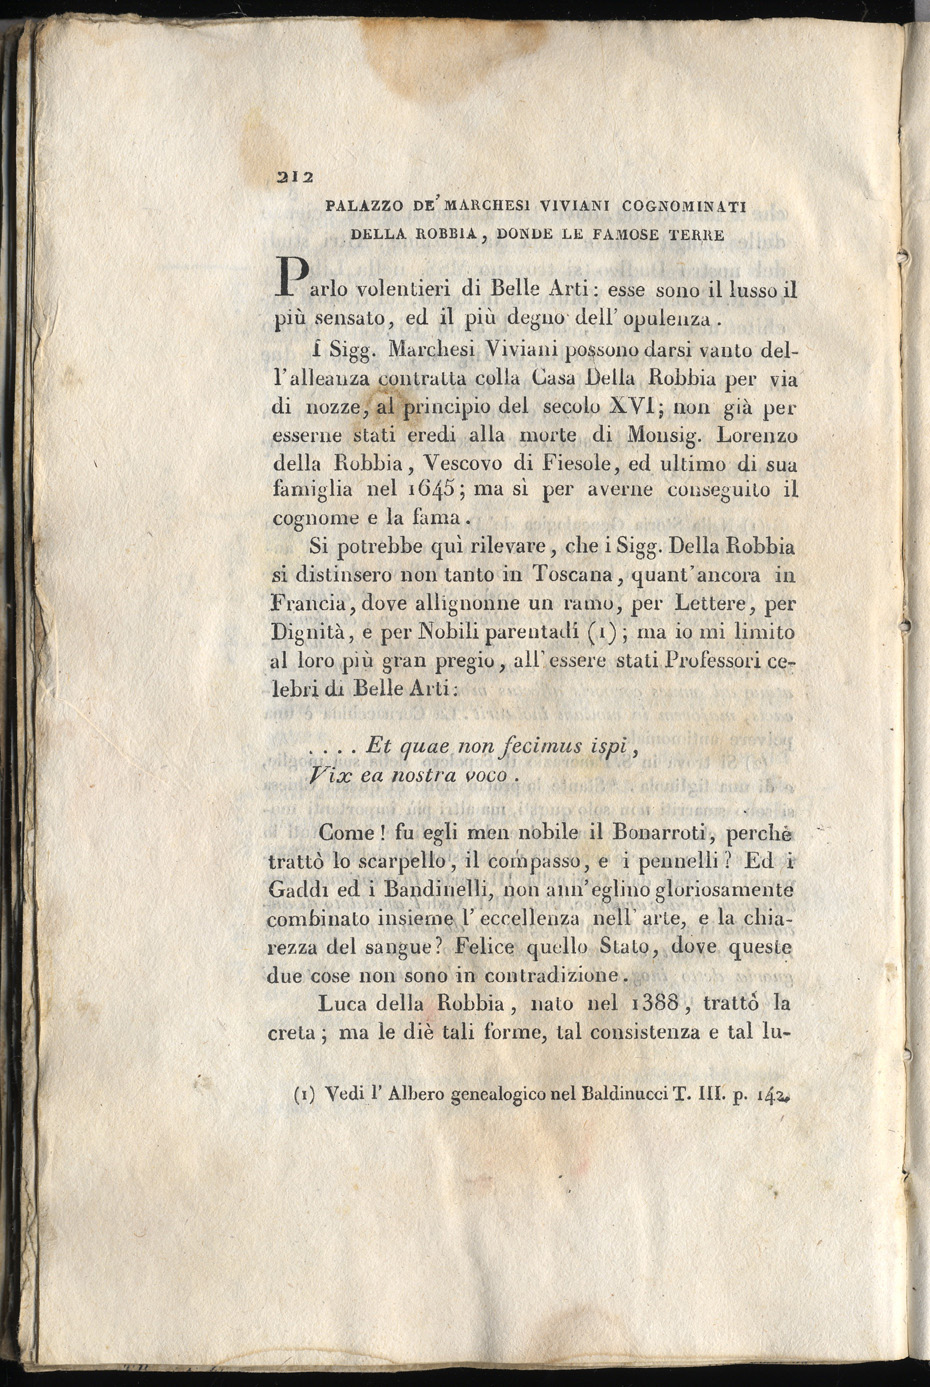 212
PALAZZO DE' MARCHESI VIVIANI COGNOMINATI
DELLA ROBBIA, DONDE LE FAMOSE TERRE
Parlo volentieri di Belle Arti: esse sono il lusso il
più sensato, ed il più degno dell' opulenza.
I Sigg. Marchesi Viviani possono darsi vanto del-
l'alleanza contratta colla Casa Della Robbia per via
di nozze, al principio del secolo XVI; non già per
esserne stati eredi alla morte di Monsig. Lorenzo
della Robbia, Vescovo di Fiesole, ed ultimo di sua
famiglia nel 1645; ma sì per averne conseguito il
cognome e la fama.
Si potrebbe quì rilevare, che i Sigg. Della Robbia
si distinsero non tanto in Toscana, quant'ancora in
Francia, dove allignonne un ramo, per Lettere, per
Dignità, e per Nobili parentadi (1); ma io mi limito
al loro più gran pregio, all'essere stati Professori ce-
lebri di Belle Arti:
.... Et quae non fecimus ispi,
Vix ea nostra voco.
Come! fu egli men nobile il Bonarroti, perchè
trattò lo scarpello, il compasso, e i pennelli? Ed i
Gaddi ed i Bandinelli, non ann'eglino gloriosamente
combinato insieme l'eccellenza nell'arte, e la chia-
rezza del sangue? Felice quello Stato, dove queste
due cose non sono in contradizione.
Luca della Robbia, nato nel 1388, trattò la
creta; ma le diè tali forme, tal consistenza e tal lu-
(1) Vedi l' Albero genealogico nel Baldinucci T. III. p. 142.